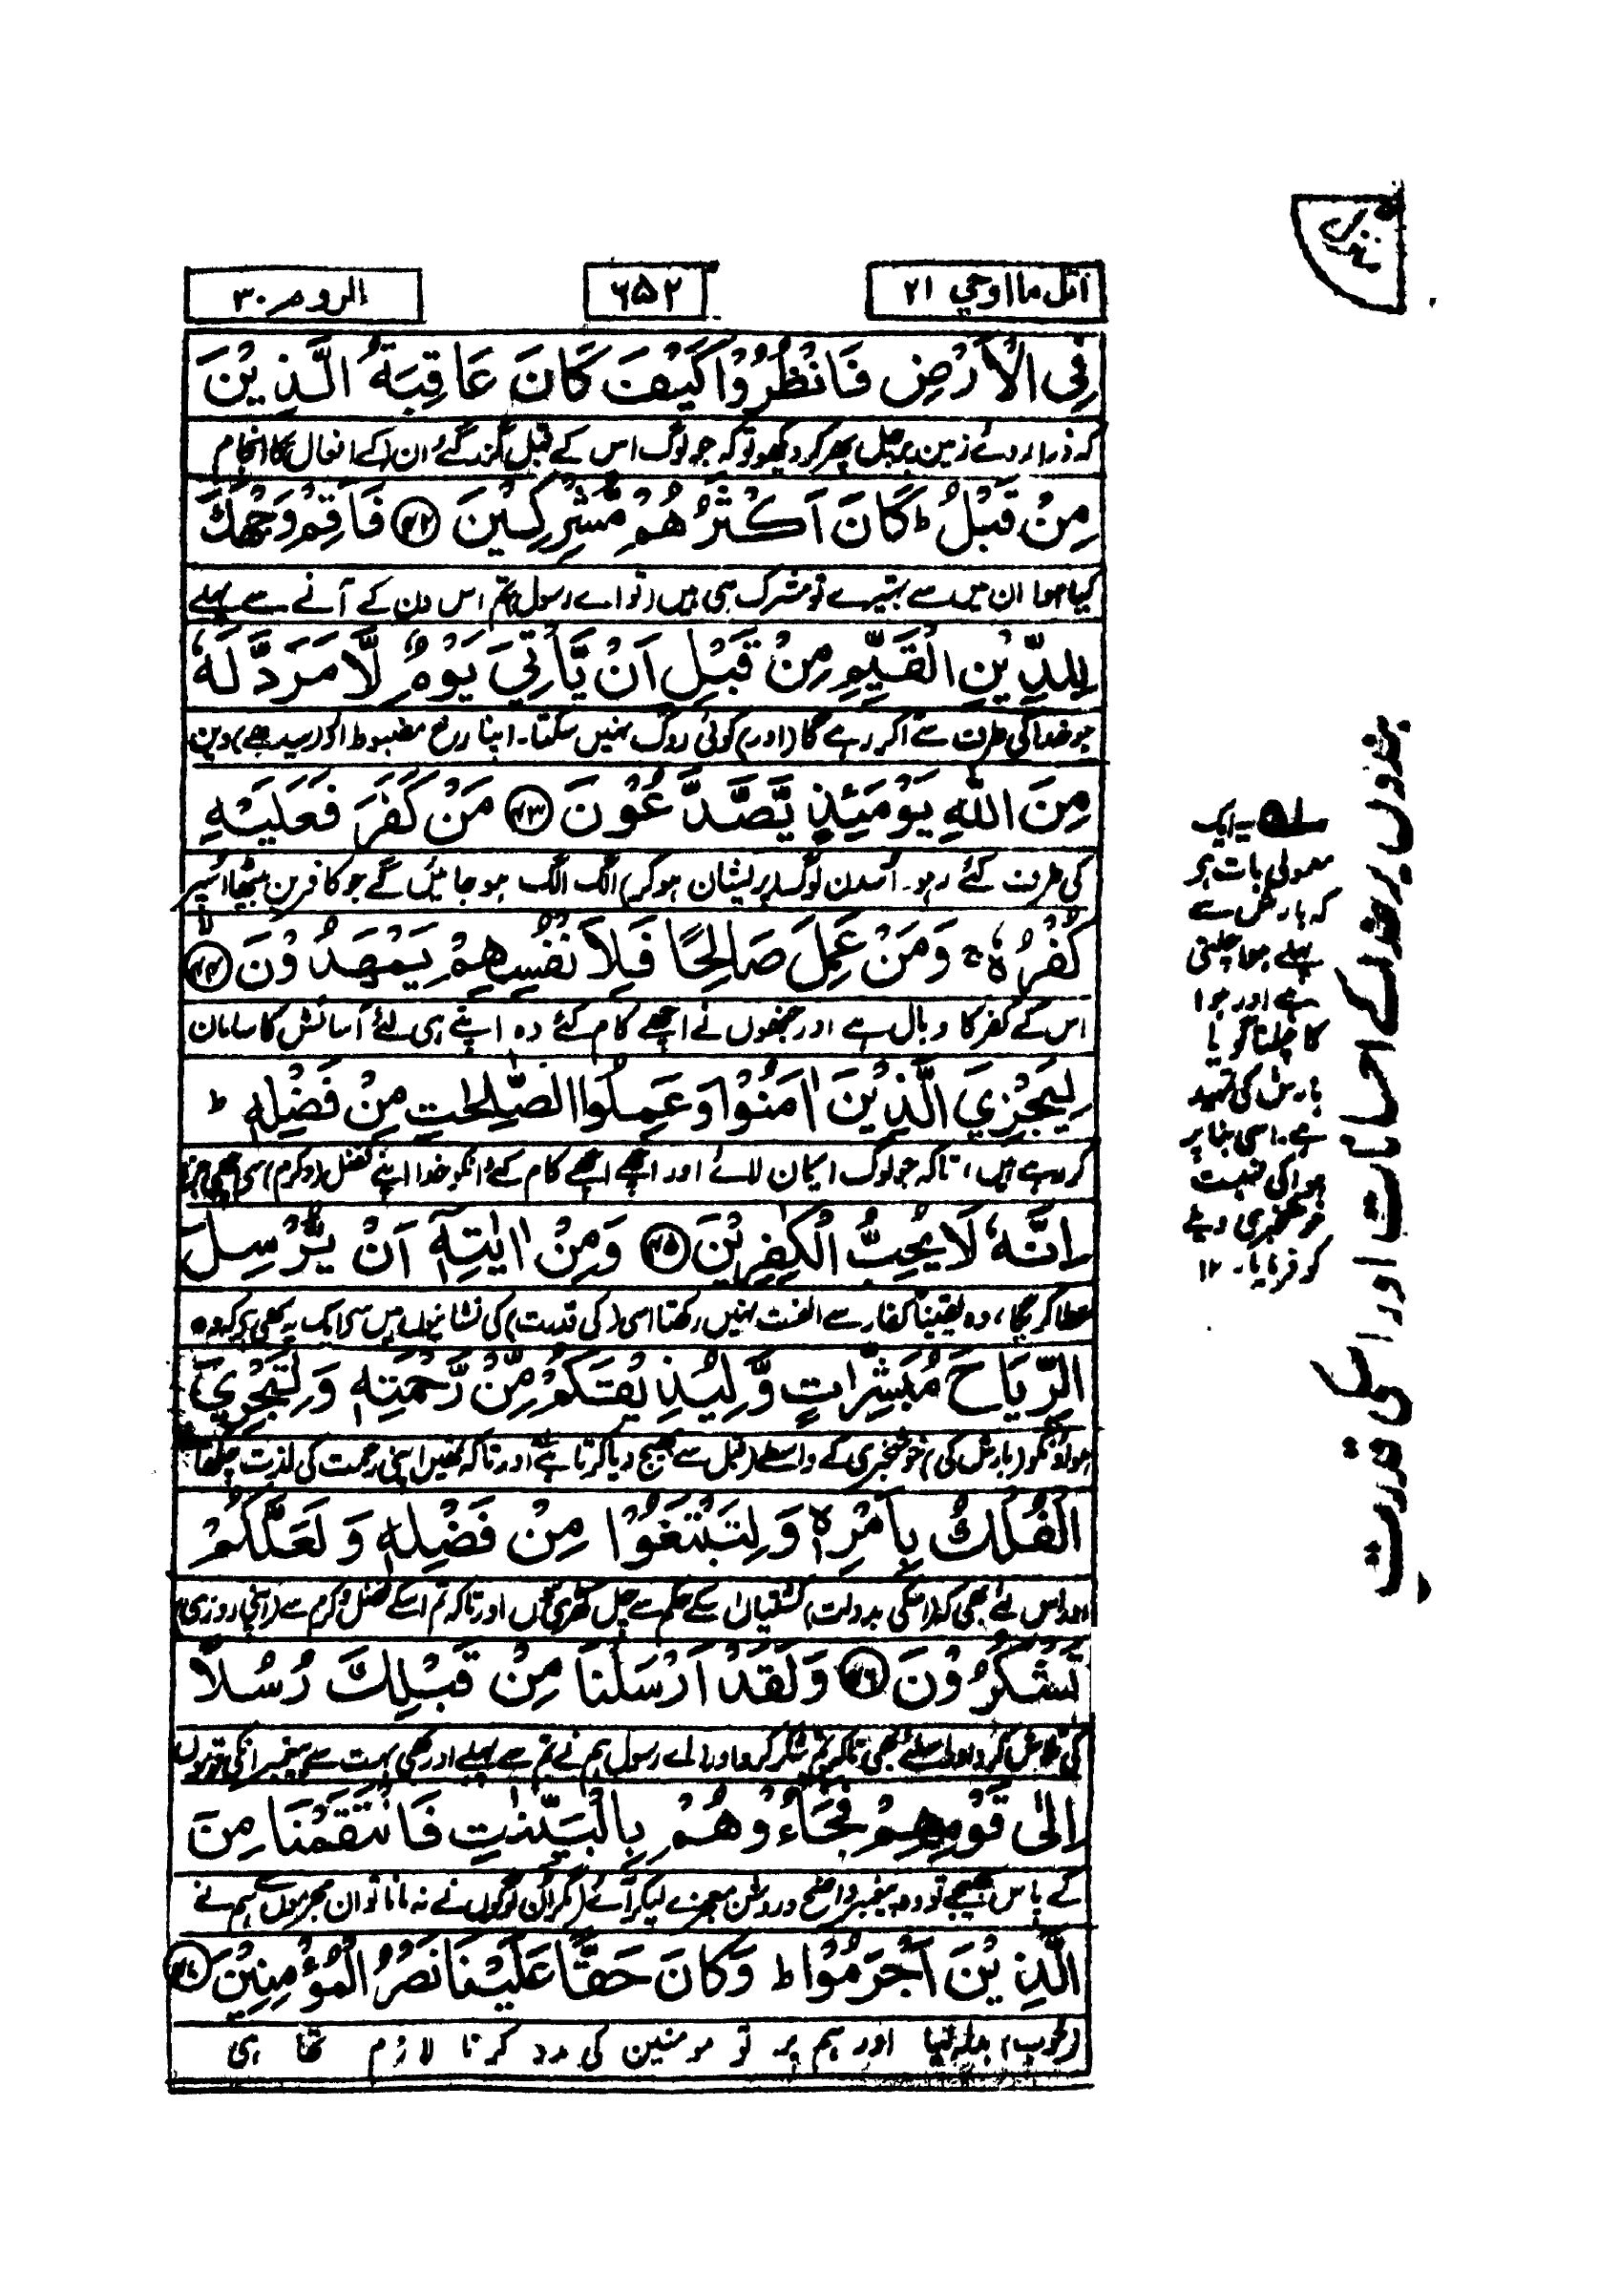 اتل ما اوحي ۲۱
۶۵۲
الروم ۳۰
فِي الْاَرْضِ فَانْظُرُوْا كَيْفَ كَانَ عَاقِبَةُ الَّذِيْنَ
کہ ذرا روئے زمین پر چل پھر کر دیکھو تو کہ جو لوگ اس کے قبل گزر گئے ان (کے افعال) کا انجام
مِنْ قَبْلُ ؕ كَانَ اَكْثَرُهُمْ مُّشْرِكِيْنَ ﴿۴۲﴾ فَاَقِمْ وَجْهَكَ
کیا ہوا ان میں سے بہتیرے تو مشرک ہی ہیں (تو اے رسول) تم اس دن کے آنے سے پہلے
لِلدِّيْنِ الْقَيِّمِ مِنْ قَبْلِ اَنْ يَّاْتِيَ يَوْمٌ لَّا مَرَدَّ لَهٗ
جو خدا کی طرف سے آ کر رہے گا (اور) کوئی روک نہیں سکتا۔ اپنا رخ مضبوط اور (سیدھے) دین
مِنَ اللّٰهِ يَوْمَئِذٍ يَّصَّدَّعُوْنَ ﴿۴۳﴾ مَنْ كَفَرَ فَعَلَيْهِ
کی طرف کئے رہو۔ اُسدن لوگ (پریشان ہو کر) الگ الگ ہو جائیں گے جو کافر بن بیٹھا اُسپر
كُفْرُهٗ ۚ وَمَنْ عَمِلَ صَالِحًا فَلِاَنْفُسِهِمْ يَمْهَدُوْنَ ﴿۴۴﴾ ۙ
اس کے کفر کا وبال ہے اور جنھوں نے اچھے کام کئے وہ اپنے ہی لئے آسائش کا سامان
لِيَجْزِيَ الَّذِيْنَ اٰمَنُوْا وَعَمِلُوا الصّٰلِحٰتِ مِنْ فَضْلِهٖ ؕ
کر رہے ہیں، تاکہ جو لوگ ایمان لائے اور اچھے اچھے کام کئے انکو خدا اپنے فضل (و کرم) سے اچھی جزا
اِنَّهٗ لَا يُحِبُّ الْكٰفِرِيْنَ ﴿۴۵﴾ وَمِنْ اٰيٰتِهٖٓ اَنْ يُّرْسِلَ
عطا کریگا، وہ یقیناً کفار سے الفت نہیں رکھتا اسی (کی قدرت) کی نشانیوں میں سے ایک یہ بھی ہے کہ وہ
الرِّيَاحَ مُبَشِّرَاتٍ وَّلِيُذِيْقَكُمْ مِّنْ رَّحْمَتِهٖ وَلِتَجْرِيَ
ہواؤنکو (بارش کی) خوشخبری کے واسطے (قبل سے) بھیج دیا کرتا ہے اور تاکہ تمھیں اپنی رحمت کی لذت چکھائے
الْفُلْكُ بِاَمْرِهٖ وَلِتَبْتَغُوْا مِنْ فَضْلِهٖ وَلَعَلَّكُمْ
اور اس لئے بھی کہ (اسکی بدولت) کشتیاں اسکے حکم سے چل کھڑی ہوں اور تاکہ تم اسکے فضل و کرم سے (اپنی روزی)
تَشْكُرُوْنَ ﴿۴۶﴾ وَلَقَدْ اَرْسَلْنَا مِنْ قَبْلِكَ رُسُلًا
کی تلاش کرو اور اسلئے بھی تاکہ تم شکر کرو اور (اے رسول) ہم نے تم سے پہلے اور بھی بہت سے پیغمبر انکی قوموں
اِلٰى قَوْمِهِمْ فَجَاۤءُوْهُمْ بِالْبَيِّنٰتِ فَانْتَقَمْنَا مِنَ
کے پاس بھیجے تو وہ پیغمبر واضح و روشن معجزے لیکر آئے (مگر ان لوگوں نے نہ مانا) تو ان مجرموں سے ہم نے
الَّذِيْنَ اَجْرَمُوْا ؕ وَكَانَ حَقًّا عَلَيْنَا نَصْرُ الْمُؤْمِنِيْنَ ﴿۴۷﴾
(خوب) بدلہ لیا اور ہم پر تو مومنین کی مدد کرنا لازم تھا ہی
یہ ایک
معمولی بات ہے
کہ بارش سے
پہلے ہوا چلتی
ہے اور ہوا
کا چلنا گویا
بارش کی تمہید
ہے۔ اسی بنا پر
ہوا کی نسبت
خوشخبری دینے
کو فرمایا۔ ۱۲
بندوں پر خدا کے احسانات اور اس کی قدرت